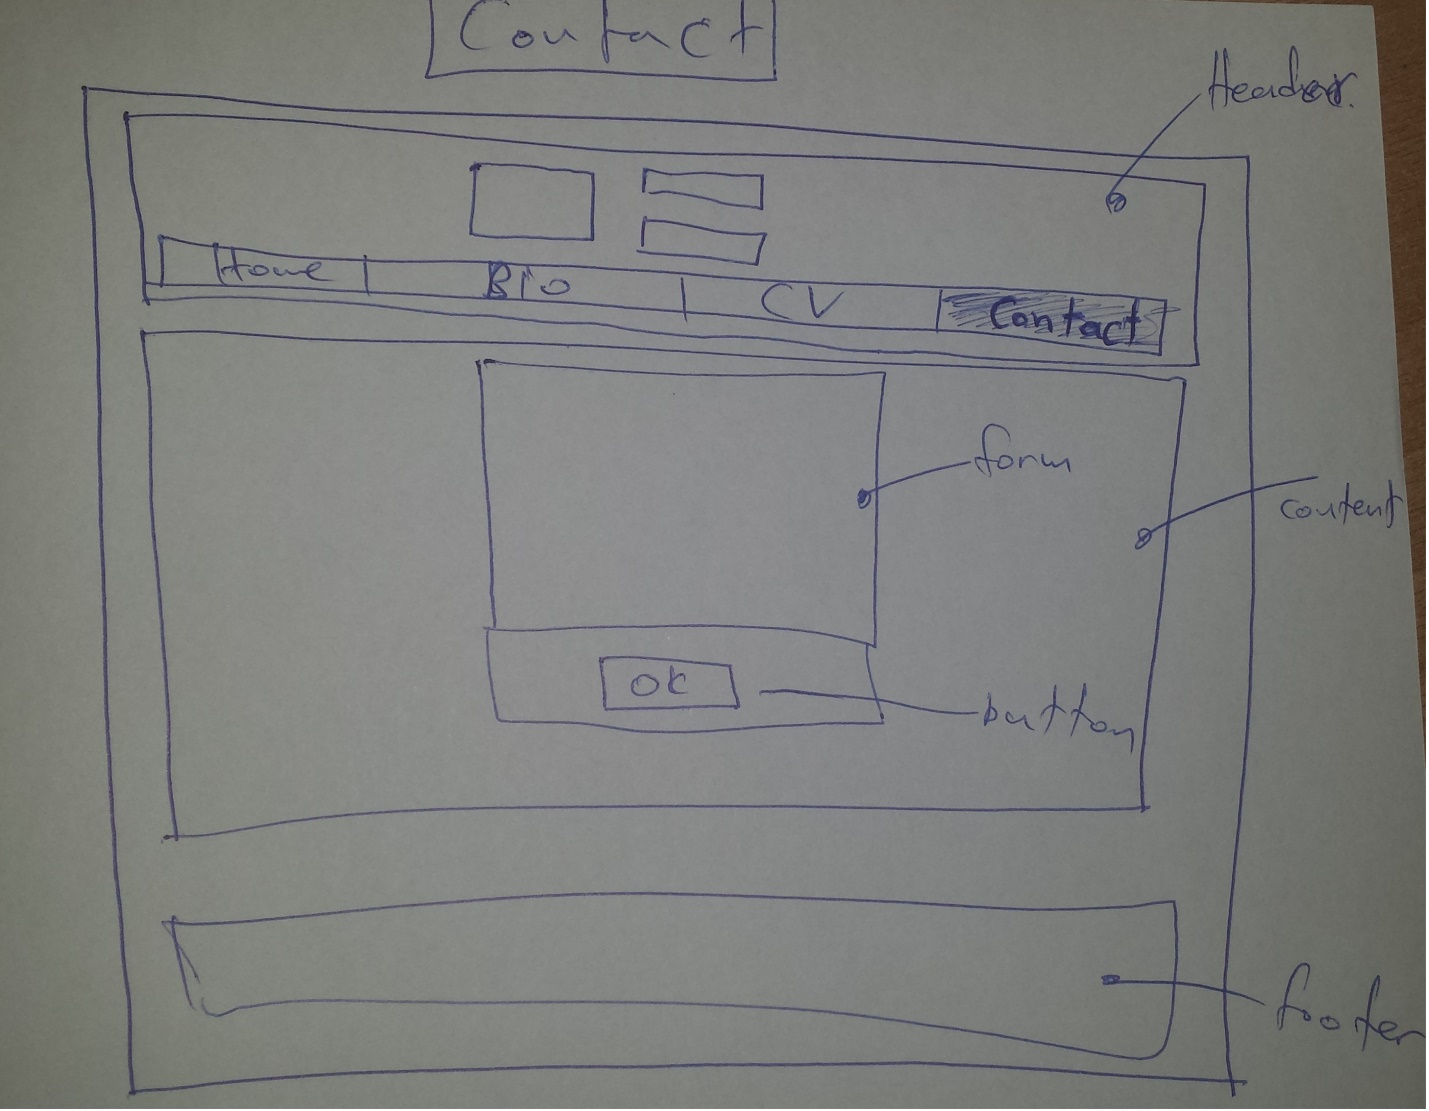 Contact
Header.
Home Bio CV Contact
form
content
OK
button
footer